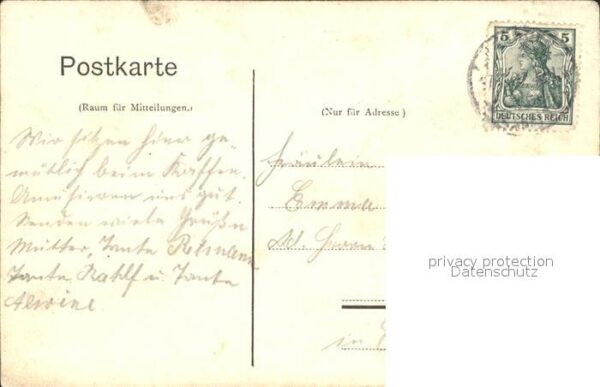 Postkarte
(Raum für Mitteilungen.)
Wir sitzen hier ge-
mütlich beim Kaffee.
Amüsieren uns gut.
Senden viele Grüße
Mutter, Tante
Tante u. Tante
Alwine
(Nur für Adresse)
5 5
DEUTSCHES REICH
Fräulein
Emma
Ad. Herrn
in
privacy protection
Datenschutz